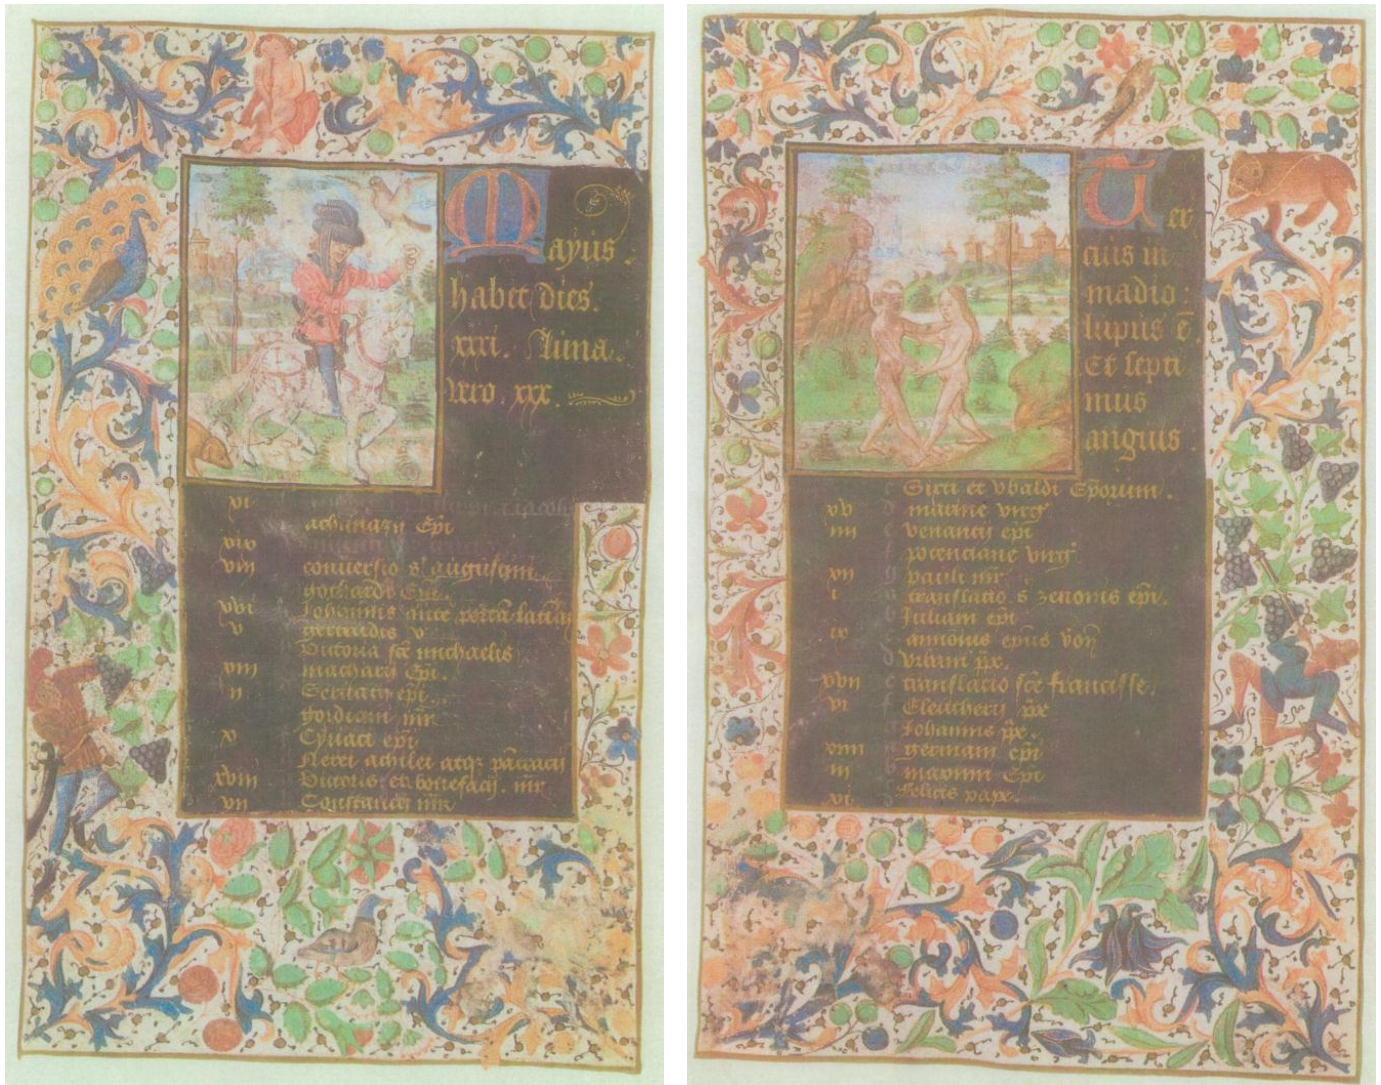 Mayus.
habet dies.
xxxi. Luna
vero. xxx.
vi
athanazii Epi
xiv
viii conversio s. augustini
gothardi Epi.
xvi Johannis ante portā latinā
v gertrudis v
Victoria sce michaelis
xiii macharii Epi.
ii Servacii epi.
gordiani mr
x Cyriaci epi
Nerei achilei atqz pācracii
xviii Victoris et bonefacii. mr
vii Constancii mr
Ter
cius in
madio:
lupus ē.
Et septi
mus
anguis.
c Sixti et ubaldi Eporum.
xv d maxime virg
iiii e venancii epi
f potenciane virg
xii g pauli mr
i a translatio s zenonis epi.
b Juliani epi
ix c epus
d urbani px.
xvii e translacio sce francisse.
vi f Eleutherii px
g Johannis px.
xiiii germani epi
iii b maximi Epi
xi felicis pape.